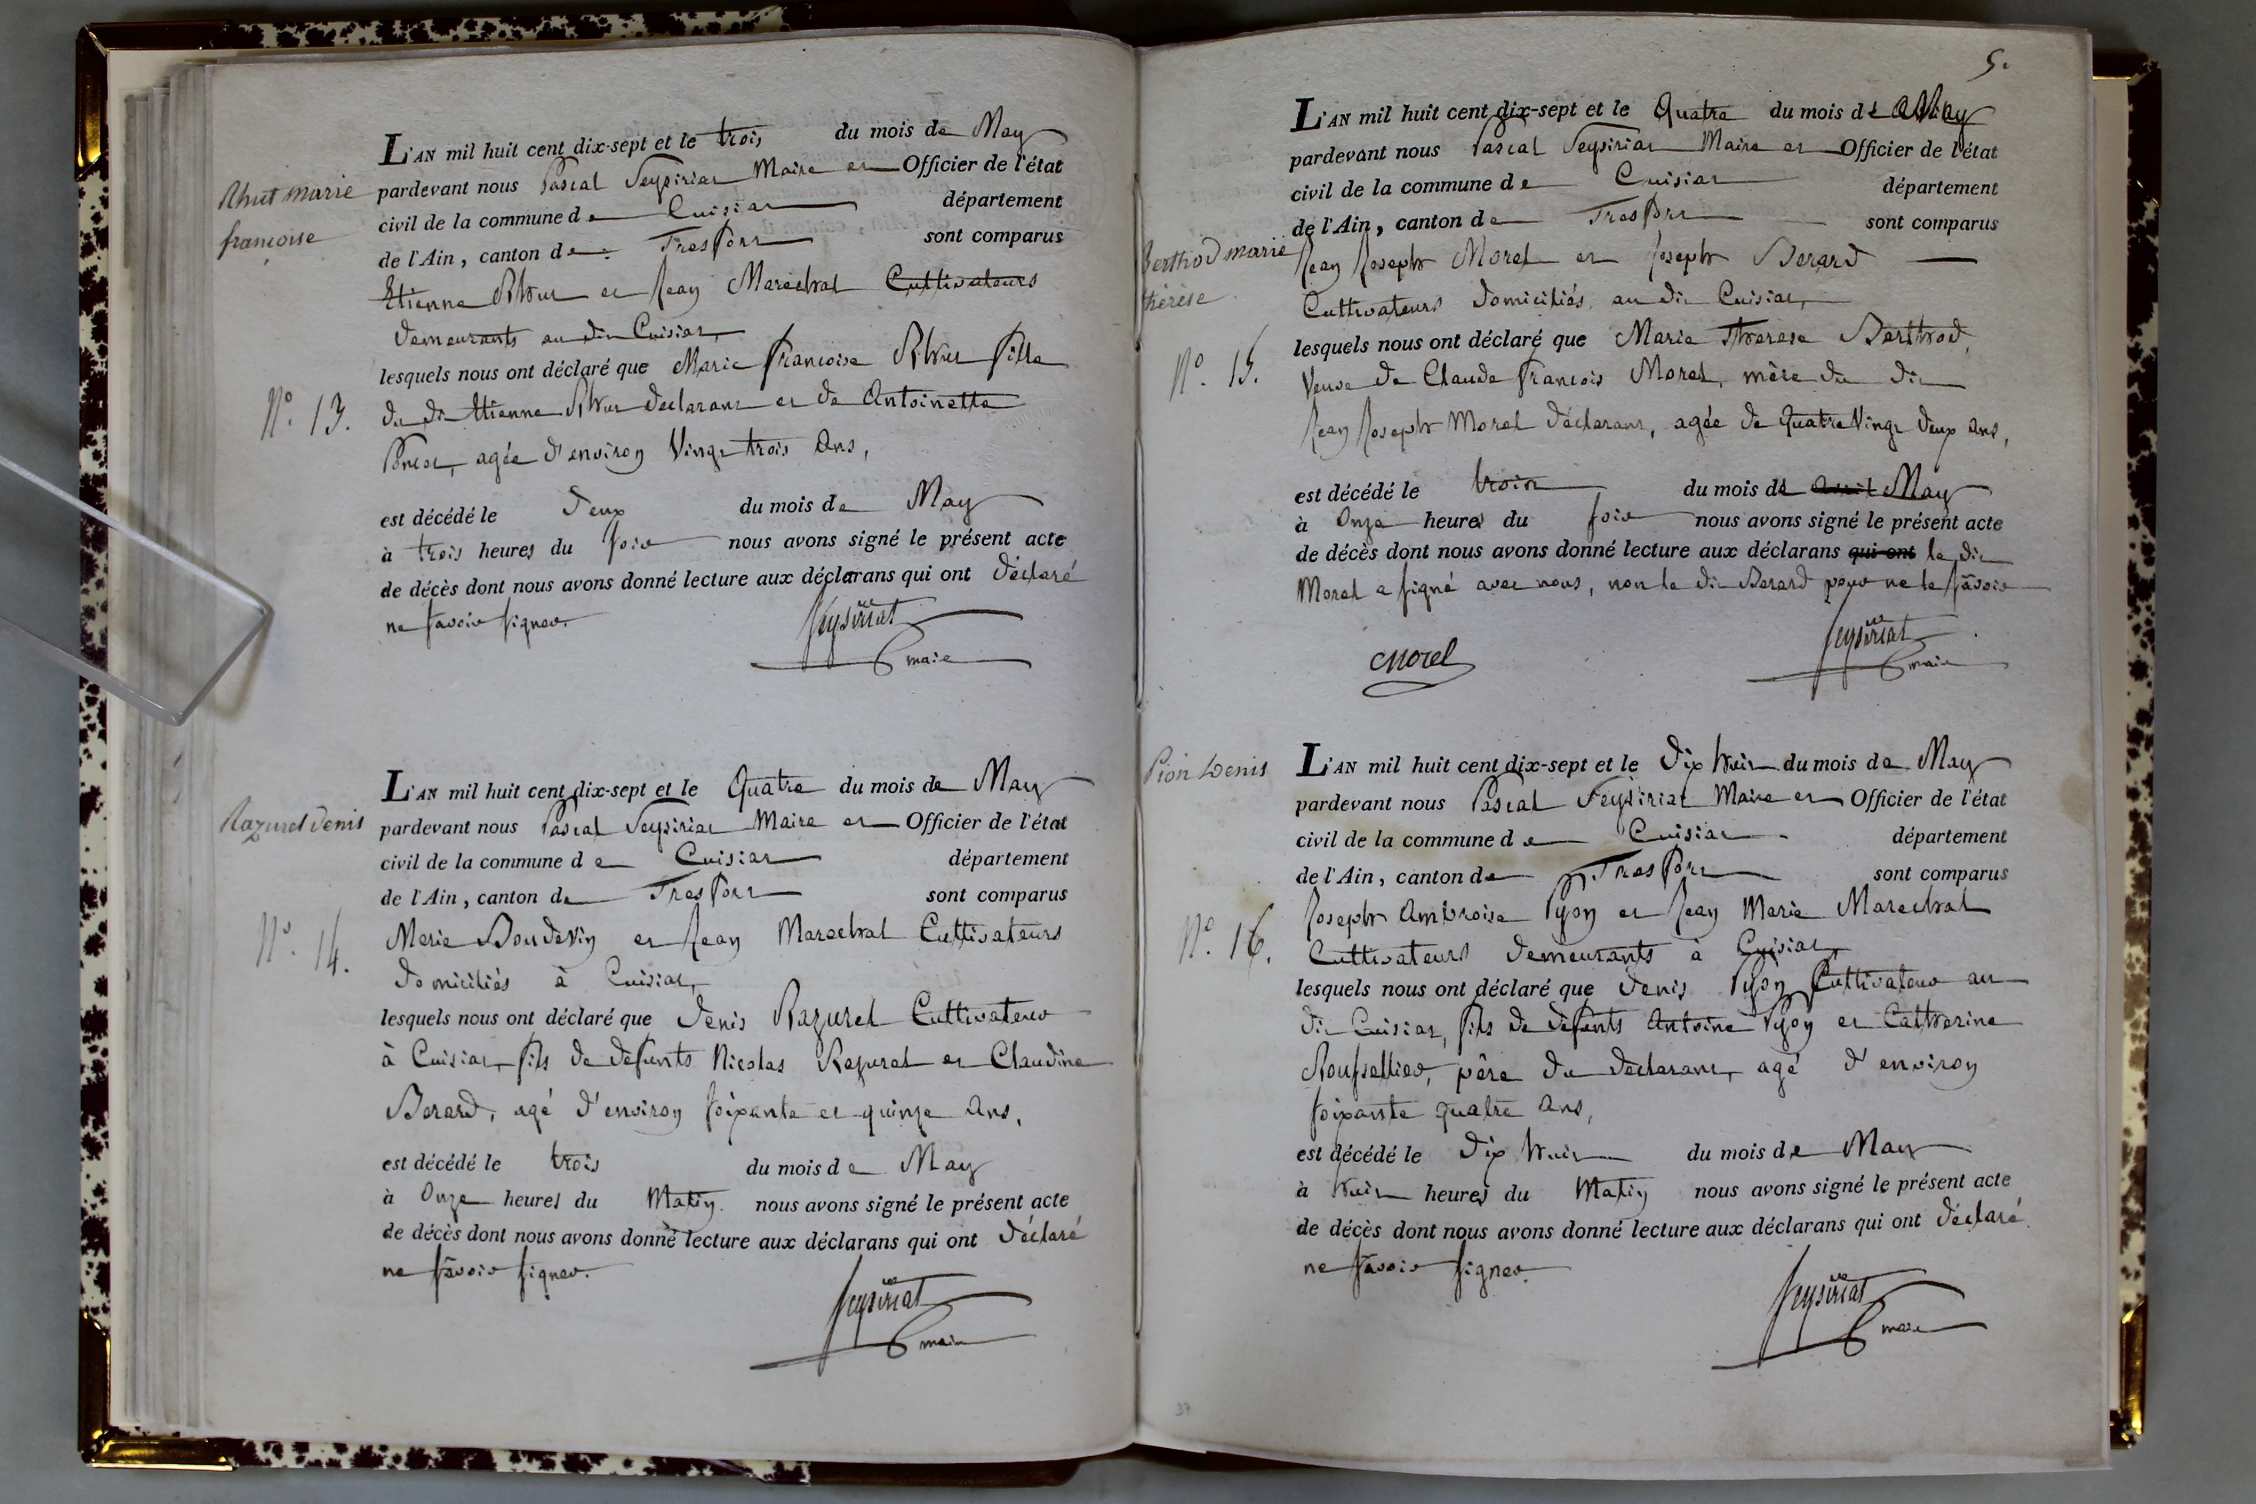 Rhut marie
françoise
N.o 13.
L'AN mil huit cent dix-sept et le trois du mois de May
pardevant nous Pascal Seysiriat Maire et Officier de l'état
civil de la commune de Cuisiat département
de l'Ain, canton de Treffort sont comparus
Etienne Rhut et Jean Marechal Cultivateurs
demeurants au dit Cuisiat,
lesquels nous ont déclaré que Marie françoise Rhut fille
du dit Etienne Rhut déclarant et de Antoinette
Poncet, agée d'environ Vingt trois ans,
est décédé le deux du mois de May
à trois heures du soir nous avons signé le présent acte
de décès dont nous avons donné lecture aux déclarans qui ont déclaré
ne savoir signer.
Seysiriat
maire
Razurel denis
N.o 14.
L'AN mil huit cent dix-sept et le Quatre du mois de May
pardevant nous Pascal Seysiriat Maire et Officier de l'état
civil de la commune de Cuisiat département
de l'Ain, canton de Treffort sont comparus
Marie Boudevin et Jean Marechal Cultivateurs
domiciliés à Cuisiat,
lesquels nous ont déclaré que denis Razurel Cultivateur
à Cuisiat, fils de defunts Nicolas Razurel et Claudine
Berard, agé d'environ soixante et quinze ans,
est décédé le trois du mois de May
à Onze heures du Matin nous avons signé le présent acte
de décès dont nous avons donné lecture aux déclarans qui ont déclaré
ne savoir signer.
Seysiriat
maire
5.
Berthod marie
thérèse
N.o 15.
L'AN mil huit cent dix-sept et le Quatre du mois de May
pardevant nous Pascal Seysiriat Maire et Officier de l'état
civil de la commune de Cuisiat département
de l'Ain, canton de Treffort sont comparus
Jean Joseph Morel et Joseph Berard
Cultivateurs domiciliés au dit Cuisiat,
lesquels nous ont déclaré que Marie Therese Berthod,
Veuve de Claude françois Morel, mère du dit
Jean Joseph Morel déclarant, agée de Quatre Vingt deux ans,
est décédé le trois du mois de avril May
à Onze heures du soir nous avons signé le présent acte
de décès dont nous avons donné lecture aux déclarans qui ont le dit
Morel a signé avec nous, non le dit Berard pour ne le savoir
Morel
Seysiriat
maire
Pion Denis
N.o 16.
L'AN mil huit cent dix-sept et le dix huit du mois de May
pardevant nous Pascal Seysiriat Maire et Officier de l'état
civil de la commune de Cuisiat département
de l'Ain, canton de Treffort sont comparus
Joseph Ambroise Pyon et Jean Marie Marechal
Cultivateurs demeurants à Cuisiat,
lesquels nous ont déclaré que denis Pyon Cultivateur au
dit Cuisiat, fils de défunts Antoine Pyon et Catherine
Roussellier, père du déclarant, agé d'environ
soixante quatre ans,
est décédé le dix huit du mois de May
à huit heures du Matin nous avons signé le présent acte
de décès dont nous avons donné lecture aux déclarans qui ont déclaré
ne savoir signer.
Seysiriat
maire
37